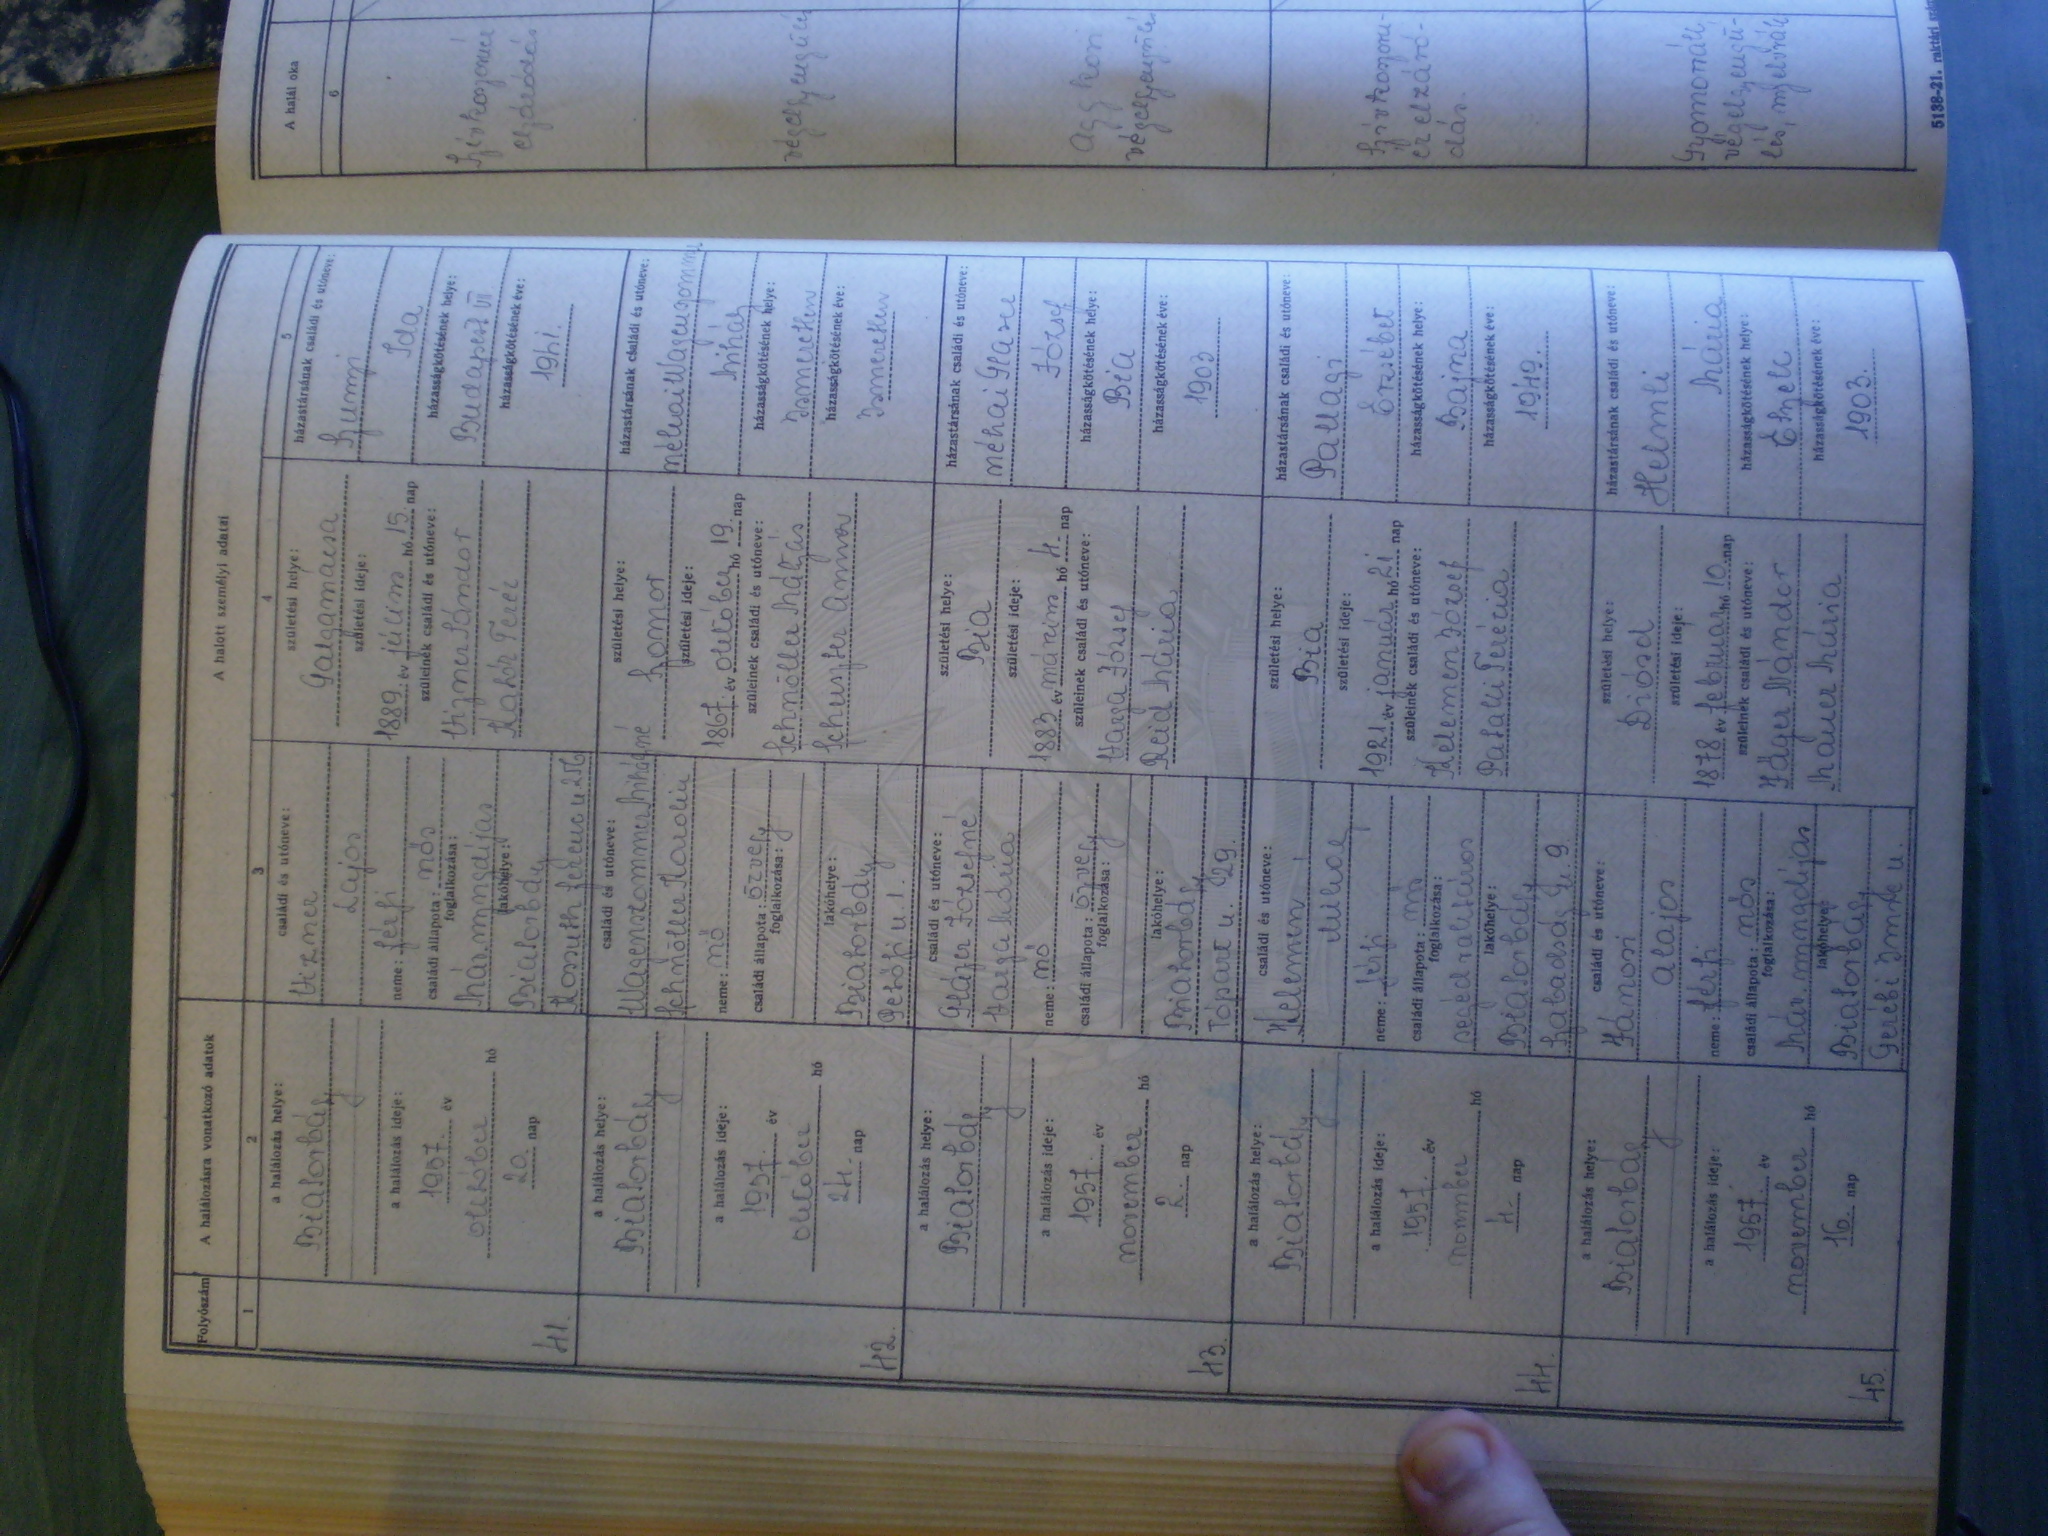 Folyószám
A halálozásra vonatkozó adatok
A halott személyi adatai
A halál oka
1
2
3
4
5
6
41.
a halálozás helye:
Biatorbágy
a halálozás ideje:
1957. év
október hó
20. nap
családi és utóneve:
Vizner
Lajos
neme: férfi
családi állapota: nős
foglalkozása:
lakóhelye:
Biatorbágy
Kossuth Ferenc u
születési helye:
Galgamácsa
születési ideje:
1889. év július hó 15. nap
szüleinek családi és utóneve:
Vizner Sándor
Teréz
házastársának családi és utóneve:
Ida
házasságkötésének helye:
Budapest VII
házasságkötésének éve:
1941.
Szívkoszorúér
elzáródás
42.
a halálozás helye:
Biatorbágy
a halálozás ideje:
1957. év
október hó
24. nap
családi és utóneve:
Wagenzommer Mihályné
Schmöller Karolin
neme: nő
családi állapota: özvegy
foglalkozása:
lakóhelye:
Biatorbágy
Petőfi u 1.
születési helye:
Zsomor
születési ideje:
1867. év október hó 19. nap
szüleinek családi és utóneve:
Schmöller Mátyás
Schuszter Anna
házastársának családi és utóneve:
néhai Wagenzommer
Mihály
házasságkötésének helye:
Ismeretlen
házasságkötésének éve:
Ismeretlen
végelgyengülés
43.
a halálozás helye:
Biatorbágy
a halálozás ideje:
1957. év
november hó
2. nap
családi és utóneve:
Józsefné
Varga Mária
neme: nő
családi állapota: özvegy
foglalkozása:
lakóhelye:
Biatorbágy
Tópart u. 29.
születési helye:
Bia
születési ideje:
1883 év március hó 4. nap
szüleinek családi és utóneve:
Varga József
Reid Mária
házastársának családi és utóneve:
néhai
József
házasságkötésének helye:
Bia
házasságkötésének éve:
1903
Aggkori
végelgyengülés
44.
a halálozás helye:
Biatorbágy
a halálozás ideje:
1957. év
november hó
4. nap
családi és utóneve:
Kelemen
Mihály
neme: férfi
családi állapota: nős
foglalkozása:
segédraktáros
lakóhelye:
Biatorbágy
Szabadság u 9.
születési helye:
Bia
születési ideje:
1921 év január hó 21 nap
szüleinek családi és utóneve:
Kelemen József
Pataki Terézia
házastársának családi és utóneve:
Pallagi
Erzsébet
házasságkötésének helye:
Bajna
házasságkötésének éve:
1949.
Szívkoszorú-
ér elzáró-
dás.
45.
a halálozás helye:
Biatorbágy
a halálozás ideje:
1957. év
november hó
16. nap
családi és utóneve:
Jánosi
Alajos
neme: férfi
családi állapota: nős
foglalkozása:
lakóhelye:
Biatorbágy
Gerébi Imre u.
születési helye:
Diósd
születési ideje:
1878 év február hó 10. nap
szüleinek családi és utóneve:
Jäger Nándor
Mayer Mária
házastársának családi és utóneve:
Helmli
Mária
házasságkötésének helye:
Etyek
házasságkötésének éve:
1903.
Gyomorrák,
végelgyengü-
lés, nyelvrák
5138-21. raktári szám